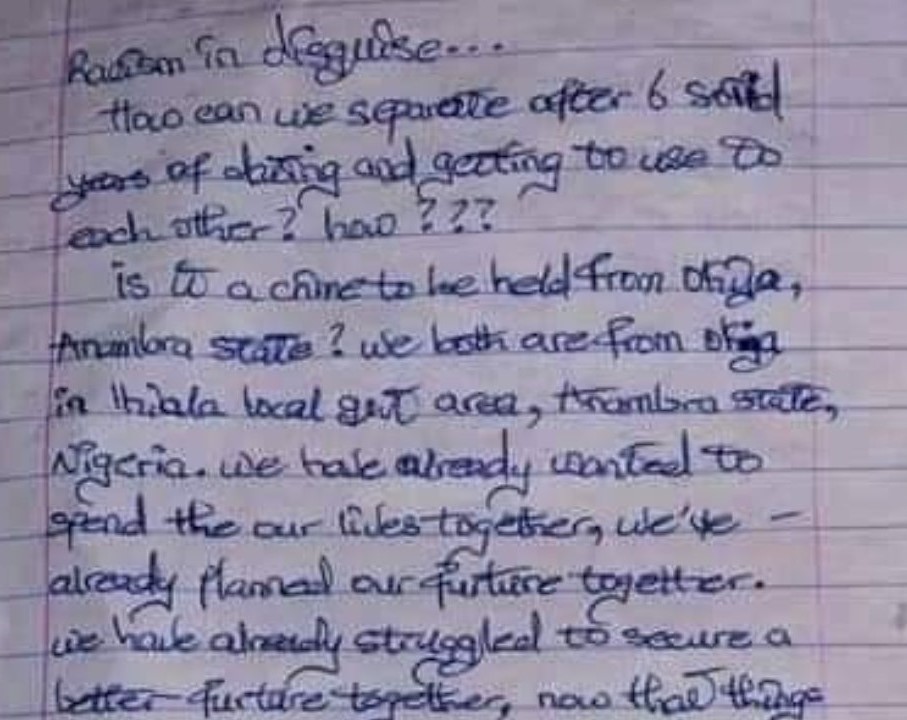 Racism in disguise...
How can we separate after 6 solid
years of dating and getting to use to
each other? how ???
is it a crime to be held from Okija,
Anambra state? we both are from Okija
in Ihiala local gvt area, Anambra state,
Nigeria. we have already wanted to
spend the our lives together, we've -
already planned our furture together.
we have already struggled to secure a
better furture together, now that things